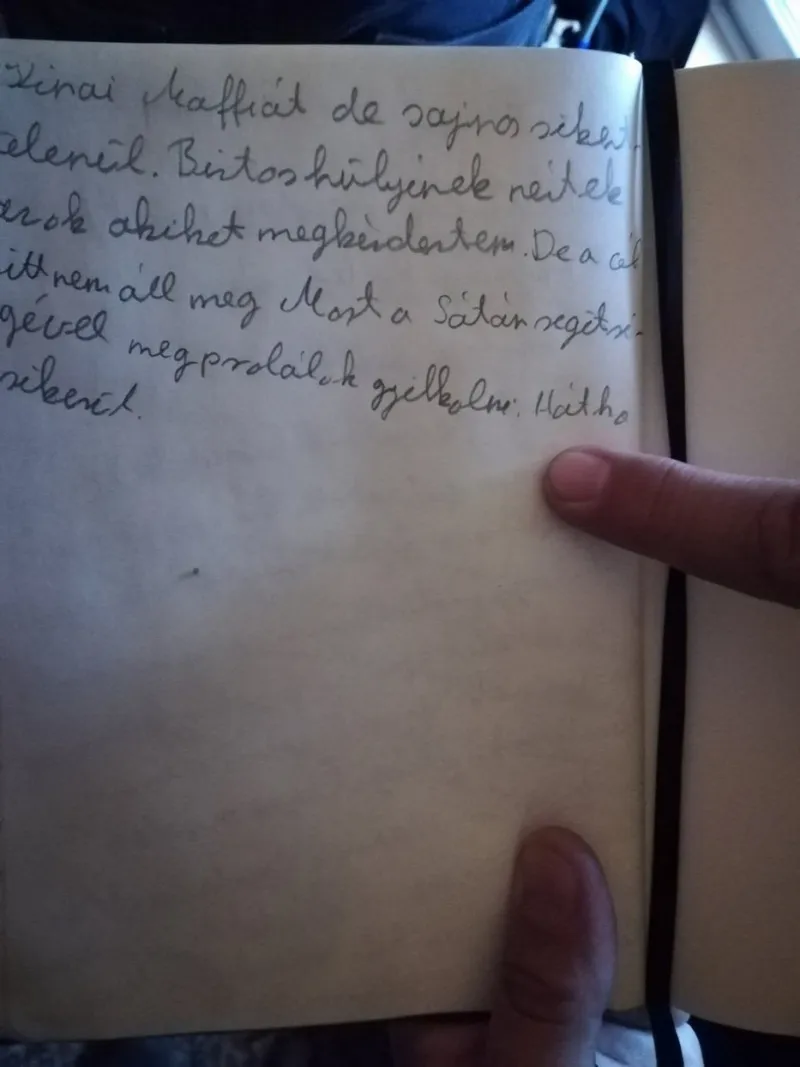 Kinai Maffiát de sajnos siker-
telenűl. Biztos hülyének néztek
azok akiket megkérdeztem. De a cél
itt nem áll meg Most a Sátán segítsé-
gével megprobálok gyilkolni. Hátha
sikerűl.